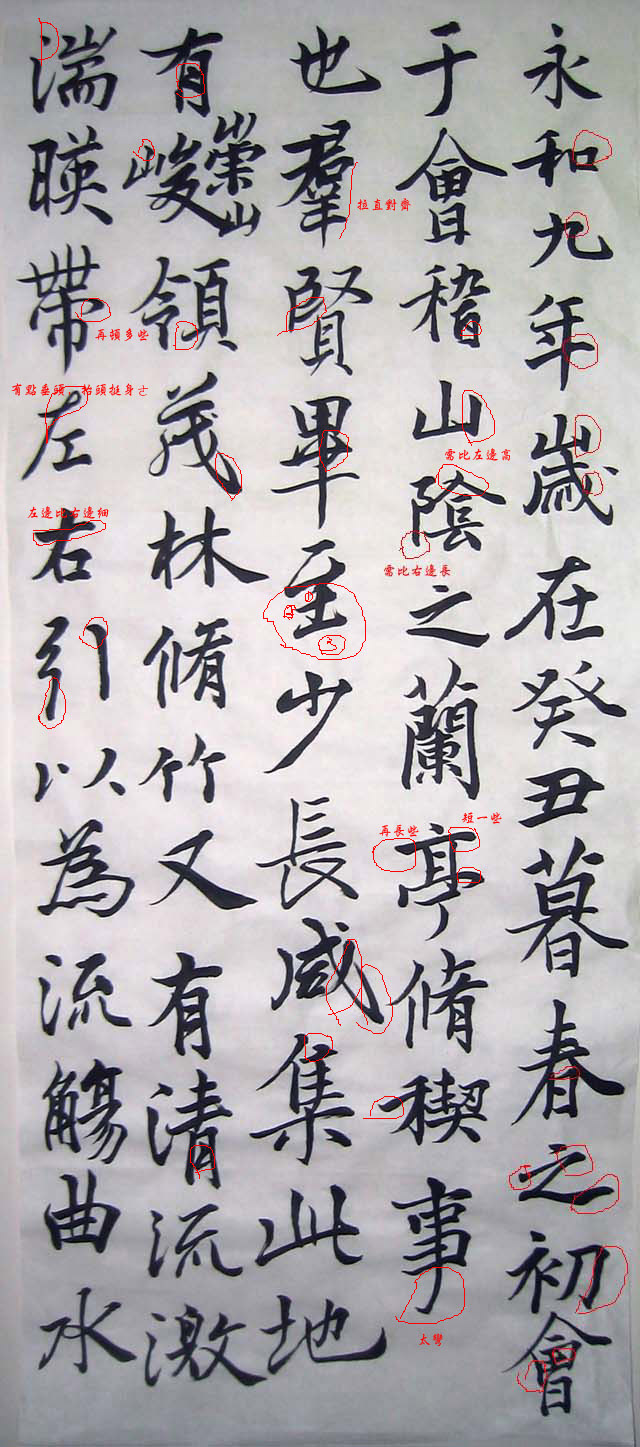 永和九年歲在癸丑暮春之初會
于會稽山陰之蘭亭脩稧事
也羣賢畢至少長咸集此地
有崇山峻領茂林脩竹又有清流激
湍暎帶左右引以為流觴曲水
拉直對齊
再頓多些
有點垂頭,抬頭挺身
需比左邊高
左邊比右邊細
需比右邊長
短一些
再長些
太彎